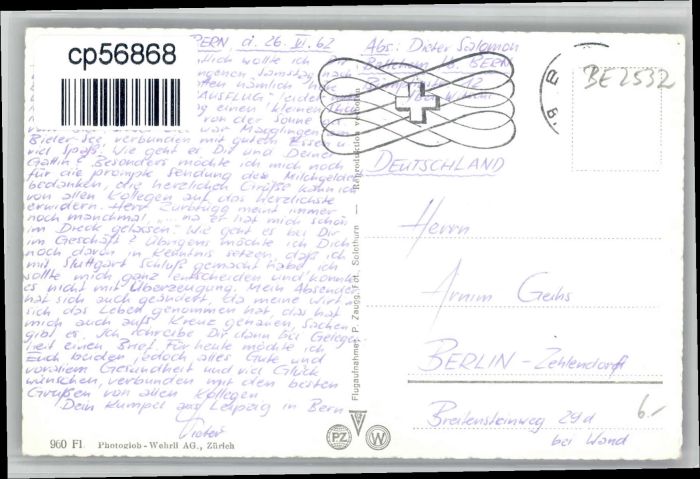 cp56868
BERN, d. 26. VI. 62
Mich wollte ich
AUSFLUG leider
einen kleinen
von der Sonne
war Magglingen am
Bieler See verbunden mit gutem Essen u.
viel Spaß. Wie geht es Dir und Deiner
Gattin? Besonders möchte ich mich noch
für die prompte Sendung des Milchgeldes
bedanken, die herzlichen Grüße kann ich
von allen Kollegen auf das Herzlichste
erwidern. Herr Zurbrügg meint immer
noch manchmal, ... na er hat mich schön
im Dreck gelassen. Wie geht es bei Dir
im Geschäft? Übrigens möchte ich Dich
noch davon in Kenntnis setzen, daß ich
mit Stuttgart Schluß gemacht habe, ich
sollte mich ganz entscheiden und konnte
es nicht mit Überzeugung. Mein Absender
hat sich auch geändert, da meine Wirtin
sich das Leben genommen hat, das hat
mich auch aufs Kreuz gehauen, Sachen
gibt es. Ich schreibe Dir dann bei Gelegen-
heit einen Brief. Für heute möchte ich
Euch beiden jedoch alles Gute und
vor allem Gesundheit und viel Glück
wünschen, verbunden mit den besten
Grüßen von allen Kollegen
Dein Kumpel aus Leipzig in Bern
Dieter
960 Fl Photoglob-Wehrli AG., Zürich
Flugaufnahme: P. Zaugg, Fot. Solothurn — Reproduktion verboten
Abs: Dieter Salomon
b. BERN
BE2532
DEUTSCHLAND
Herrn
Armin Gehs
BERLIN-Zehlendorf
Breitensteinweg 29d
bei Wand
6.-
PZ
W